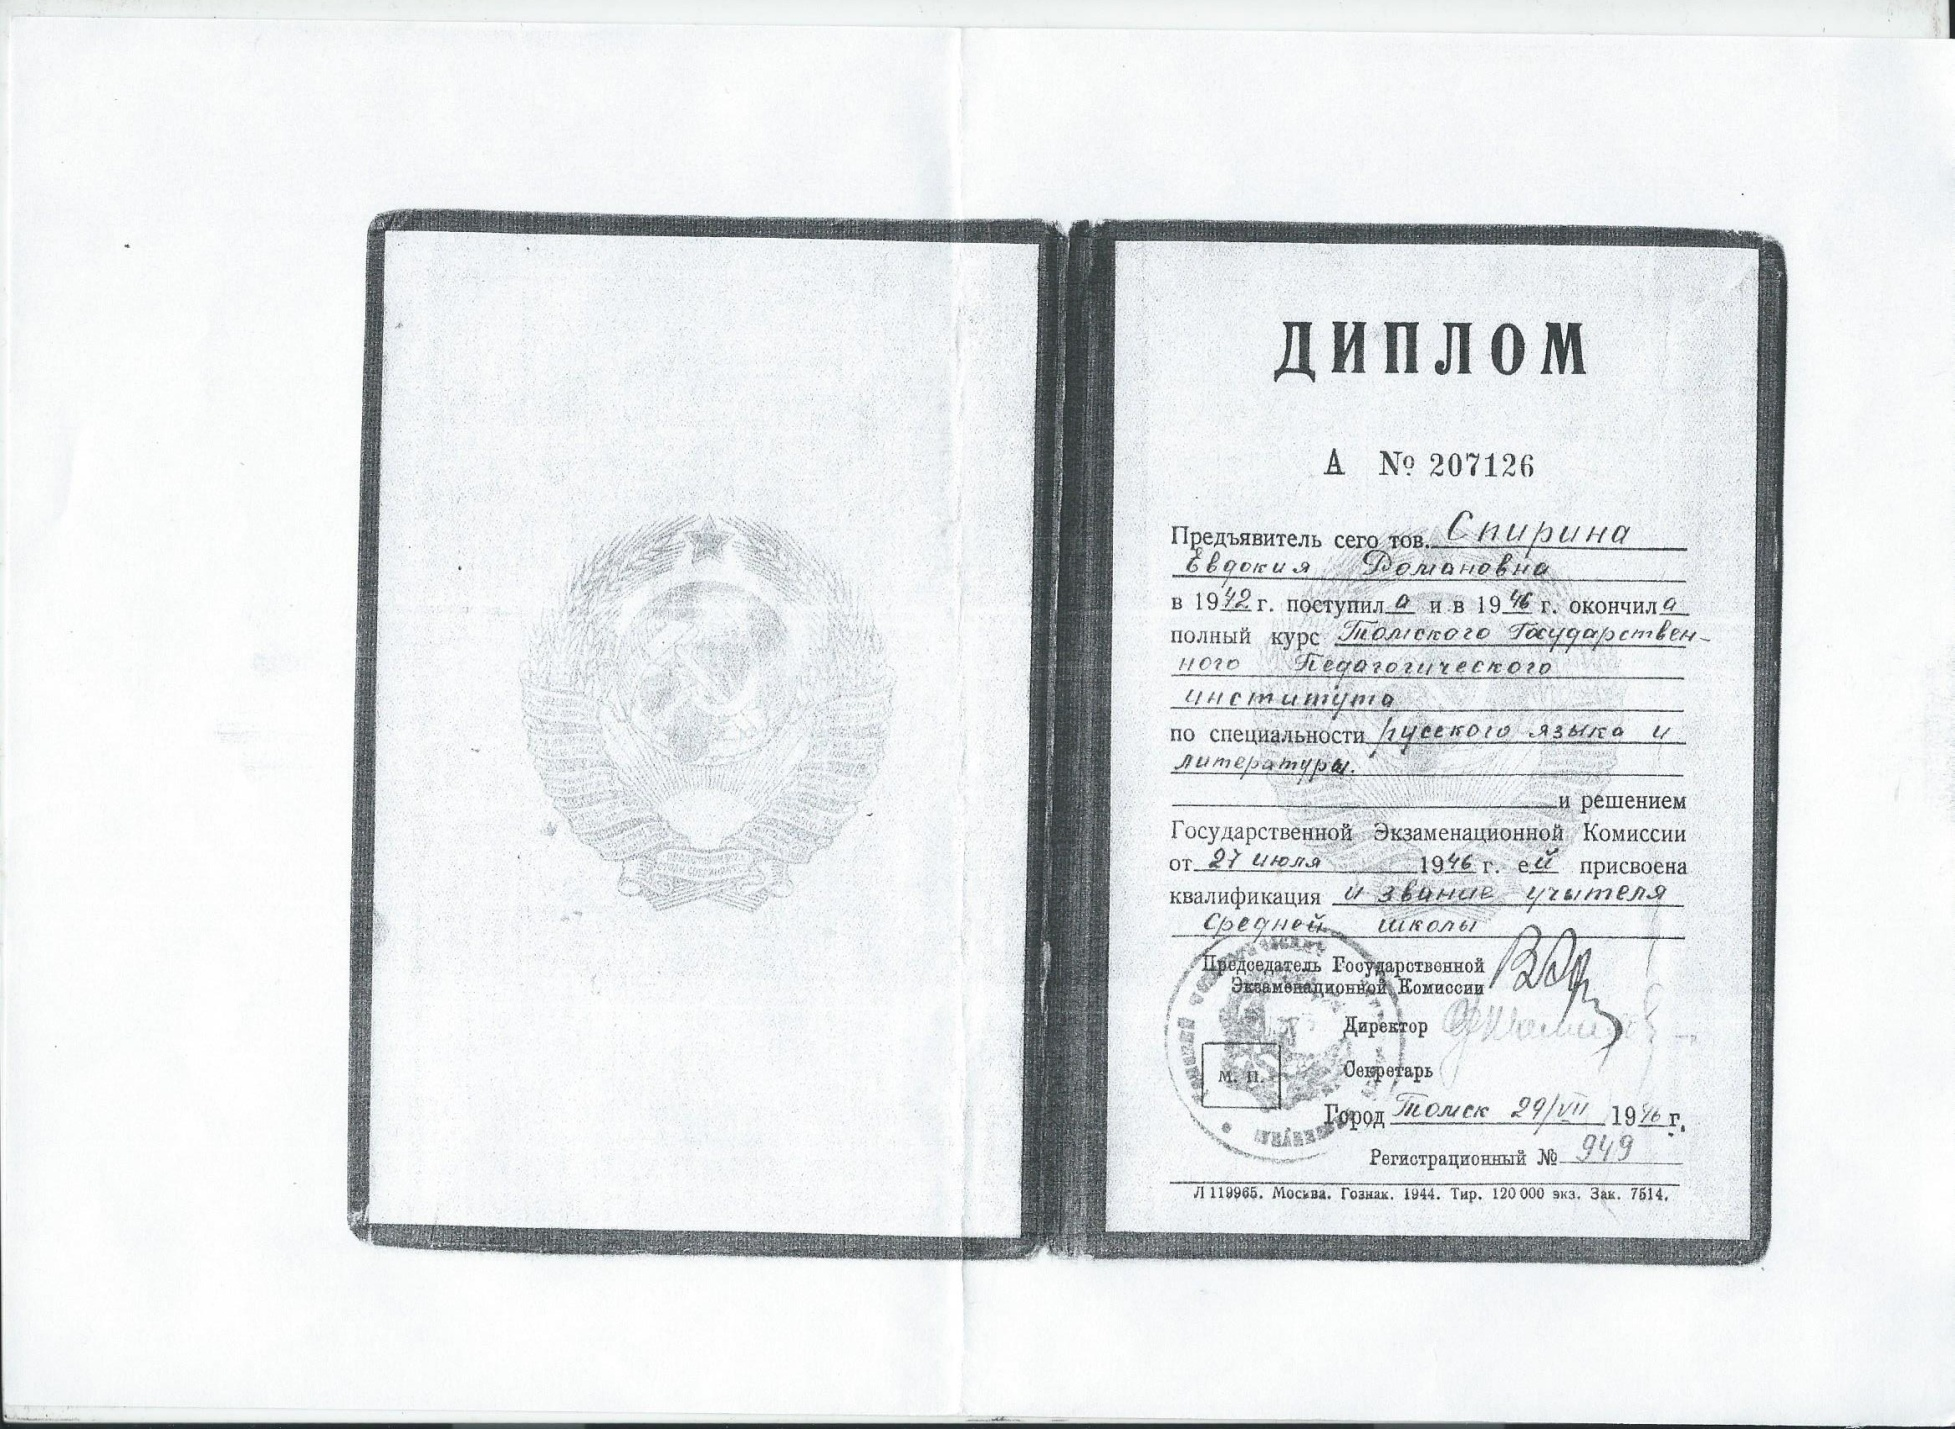 ДИПЛОМ
А № 207126
Предъявитель сего тов. Спирина
Евдокия Романовна
в 1942 г. поступила и в 1946 г. окончила
полный курс Томского Государствен-
ного Педагогического
института
по специальности русского языка и
литературы.
и решением
Государственной Экзаменационной Комиссии
от 27 июля 1946 г. ей присвоена
квалификация и звание учителя
средней школы
Председатель Государственной
Экзаменационной Комиссии
Директор
Секретарь
М. П.
Город Томск 29/VII 1946 г.
Регистрационный № 949
Л 119965. Москва. Гознак. 1944. Тир. 120 000 экз. Зак. 7514.